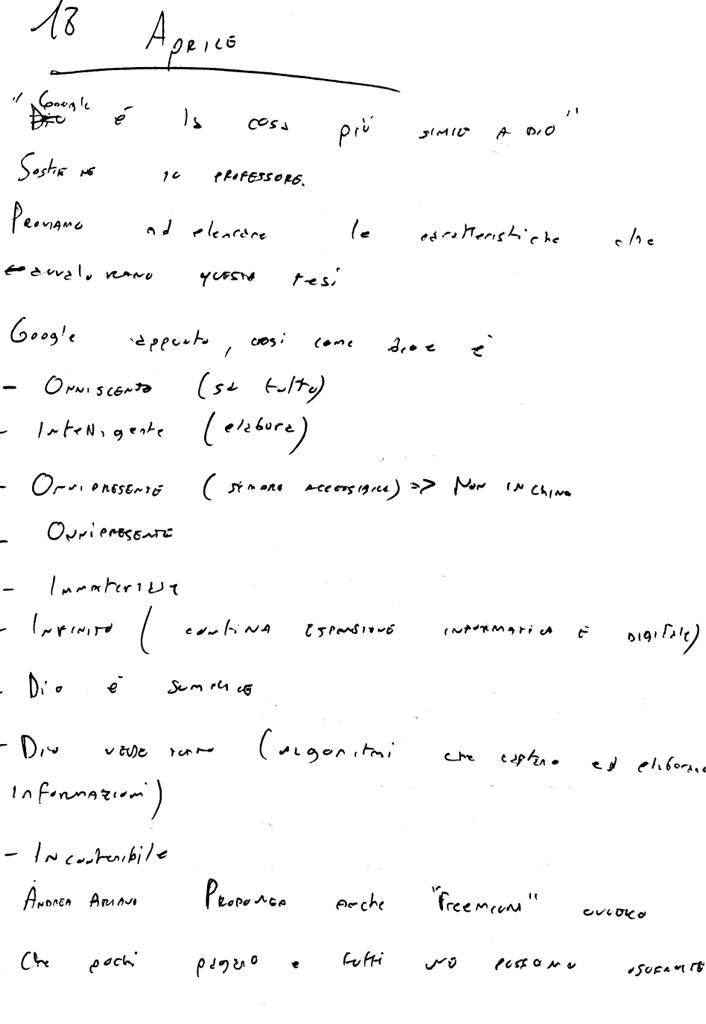 18 APRILE
"Google è la cosa più simile A DIO"
SOSTIENE IL PROFESSORE.
PROVIAMO ad elencare le caratteristiche che
avvalorano questa tesi
Google appunto, così come dio è
- ONNISCENTE (sa tutto)
- Intelligente (elabora)
- ONNIPRESENTE (SEMPRE ACCESSIBILE) => NON IN CHINA
- ONNIPRESENTE
- Immateriale
- INFINITO ( continA ESPANSIONE INFORMATICA E DIGITALE)
- Dio è SEMPLICE
- Dio VEDE TUTTO (algoritmi che captano ed elaborano
INFORMAZIONI)
- INcontenibile
ANDREA PROPONGA anche "Freemium" OVVERO
Che pochi pagano e tutti NE POSSANO USUFRUIRE